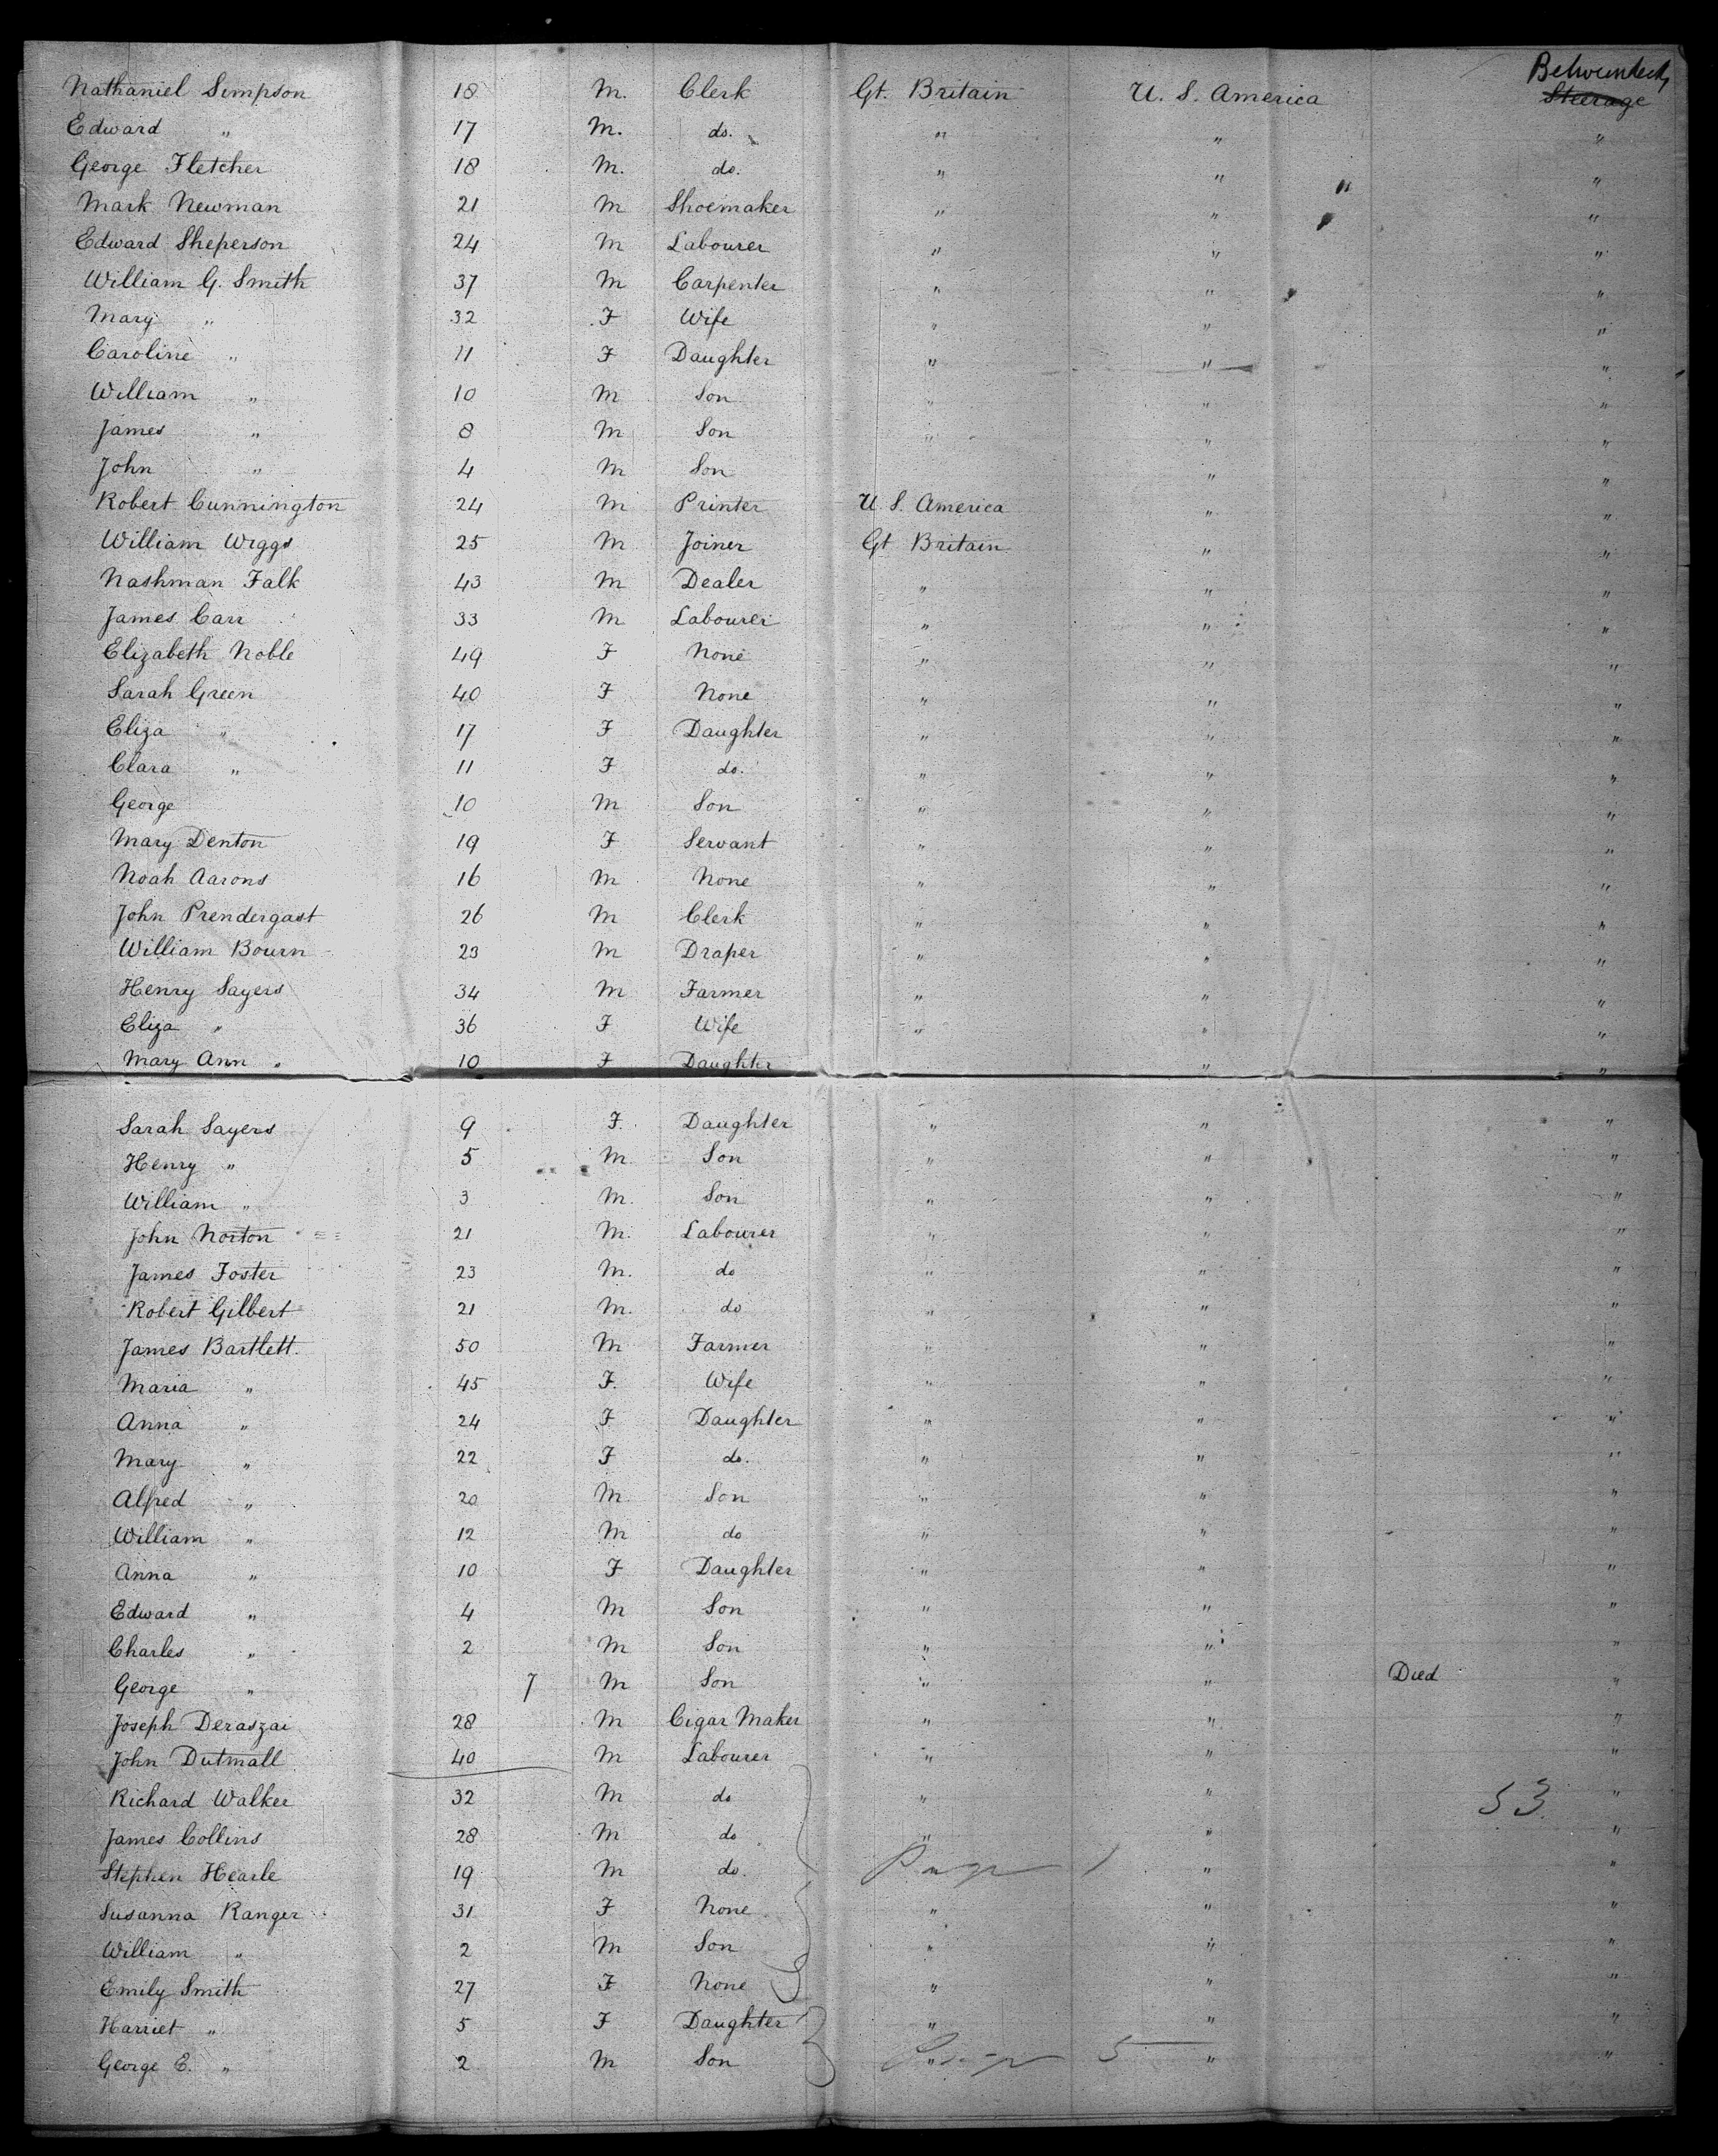 Betweendecks
Nathaniel Simpson 18 M. Clerk Gt. Britain U. S. America Steerage
Edward " 17 M. do. " " "
George Fletcher 18 M. do. " " " "
Mark Newman 21 M Shoemaker " " "
Edward Sheperson 24 M Labourer " " "
William G. Smith 37 M Carpenter " " "
Mary " 32 F Wife " " "
Caroline " 11 F Daughter " " "
William " 10 M Son " " "
James " 8 M Son " " "
John " 4 M Son " "
Robert Cunnington 24 M Printer U. S. America " "
William Wiggs 25 M Joiner Gt Britain " "
Nashman Falk 43 M Dealer " " "
James Carr 33 M Labourer " " "
Elizabeth Noble 49 F None " " "
Sarah Green 40 F None " " "
Eliza " 17 F Daughter " " "
Clara " 11 F do. " " "
George 10 M Son " " "
Mary Denton 19 F Servant " " "
Noah Aarons 16 M None " " "
John Prendergast 26 M Clerk " " "
William Bourn 23 M Draper " " "
Henry Sayers 34 M Farmer " " "
Eliza " 36 F Wife " " "
Mary Ann " 10 F Daughter " "
Sarah Sayers 9 F. Daughter " " "
Henry " 5 M. Son " " "
William " 3 M. Son " " "
John Norton 21 M. Labourer " " "
James Foster 23 M. do " " "
Robert Gilbert 21 M. do " " "
James Bartlett. 50 M Farmer " " "
Maria " 45 F. Wife " " "
Anna " 24 F Daughter " " "
Mary " 22 F do. " " "
Alfred " 20 M Son " " "
William " 12 M do " " "
Anna " 10 F Daughter " " "
Edward " 4 M Son " " "
Charles " 2 M Son " " "
George " 7 M Son " " Died "
Joseph Deraszai 28 M Cigar Maker " " "
John Dutmall 40 M Labourer " " "
Richard Walker 32 M do " " 53 "
James Collins 28 M do " " "
Stephen Hearle 19 M do. " "
Susanna Ranger 31 F None " " "
William " 2 M Son " " "
Emily Smith 27 F None " " "
Harriet " 5 F Daughter " " "
George E. " 2 M Son " 5 " "